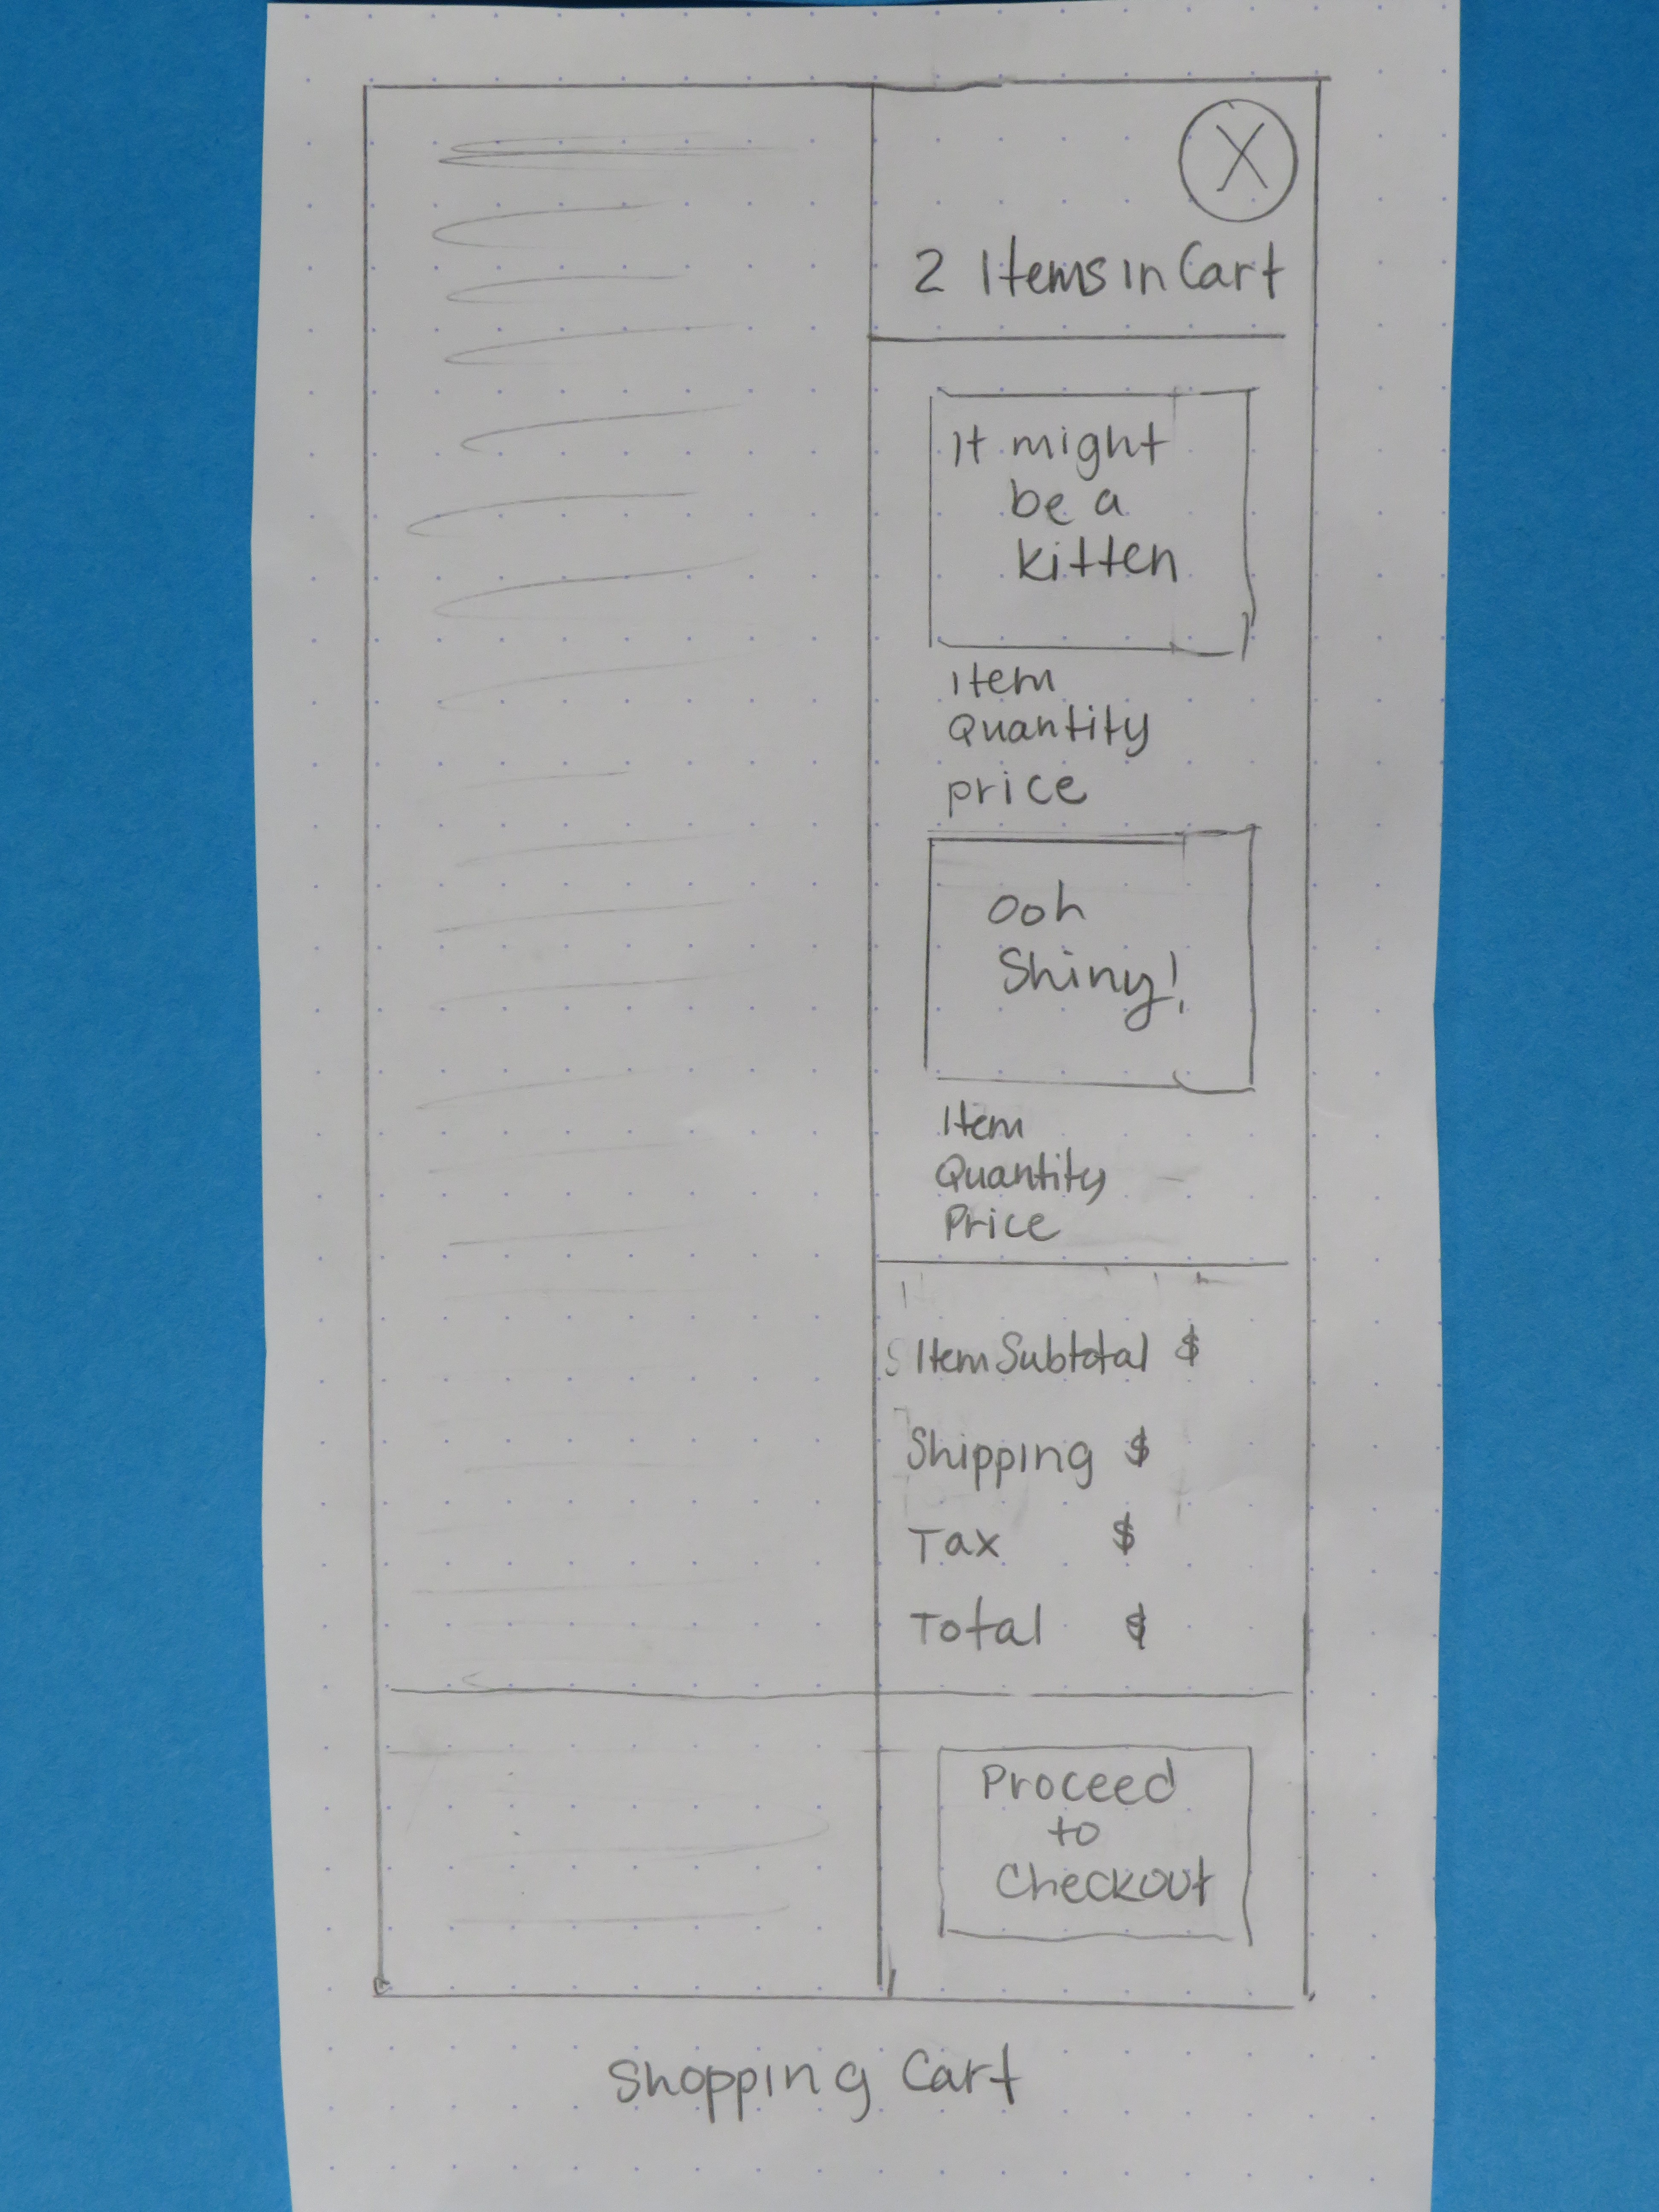 X
2 Items in Cart
It might
be a
kitten
Item
Quantity
price
Ooh
Shiny!
Item
Quantity
Price
Item Subtotal $
Shipping $
Tax $
Total $
Proceed
to
Checkout
Shopping Cart